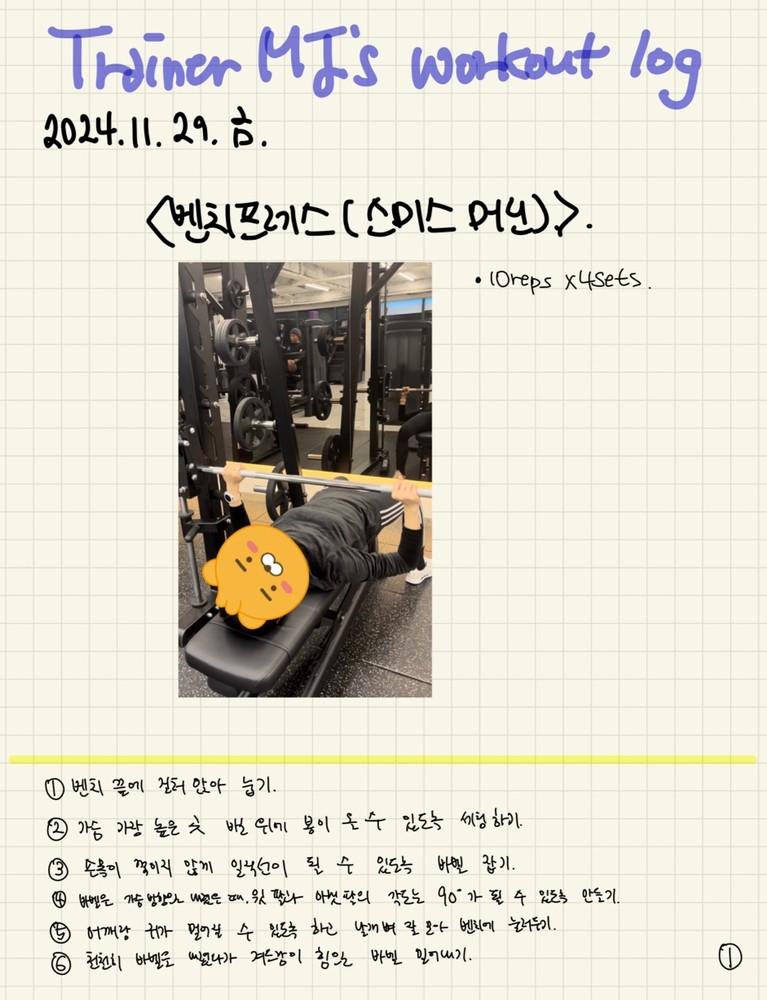 Trainer MJ's workout log
2024.11.29.금.
<벤치프레스(스미스 머신)>.
• 10reps x4sets.
① 벤치 끝에 걸터 앉아 눕기.
② 가슴 가장 높은 곳 바로 위에 봉이 올 수 있도록 세팅하기.
③ 손목이 꺾이지 않게 일직선이 될 수 있도록 바벨 잡기.
④ 바벨은 가슴 방향으로 내렸을 때, 윗 팔과 아랫 팔의 각도는 90°가 될 수 있도록 만들기.
⑤ 어깨랑 귀가 멀어질 수 있도록 하고 날개뼈 잘 모아 벤치에 눌러두기.
⑥ 천천히 바벨을 내렸다가 겨드랑이 힘으로 바벨 밀어내기.
①